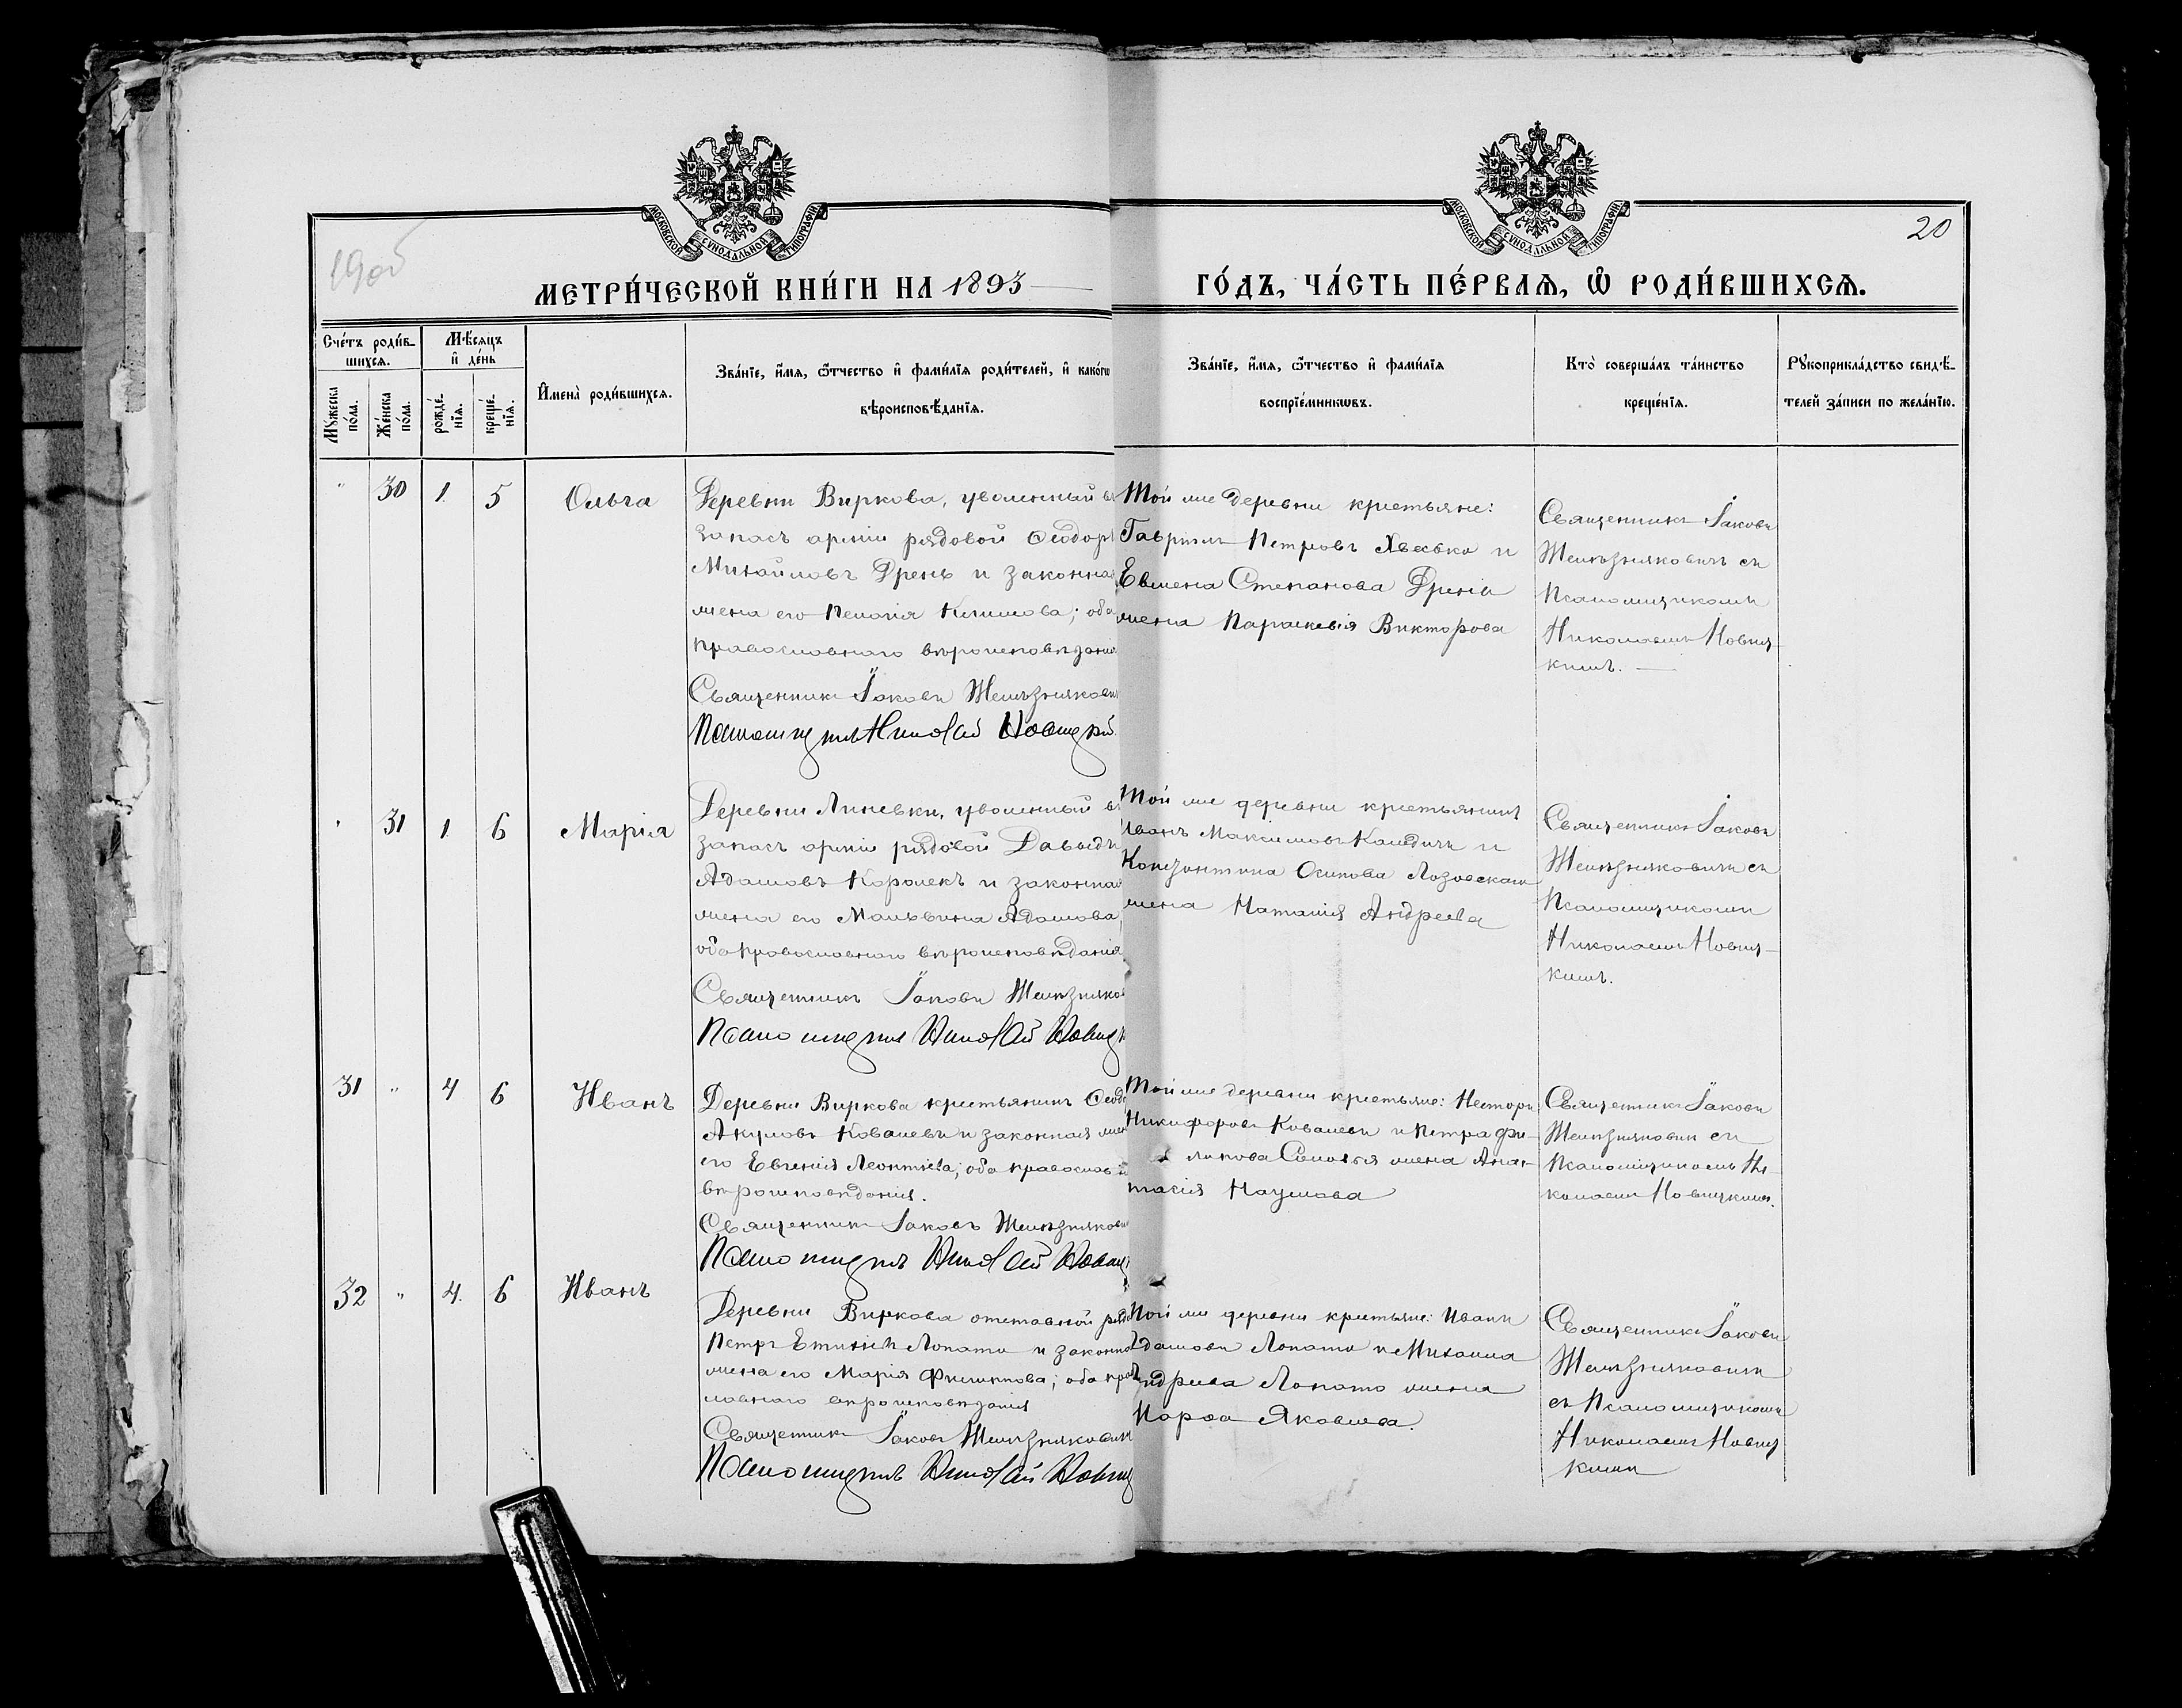 МОСКОВСКОЙ СУНОДАЛЬНОЙ ТИПОГРАФІИ
МОСКОВСКОЙ СУНОДАЛЬНОЙ ТИПОГРАФІИ
19об
20
МЕТРИ́ЧЕСКОЙ КНИ́ГИ НА 1893
ГО́ДЪ, ЧА́СТЬ ПЕ́РВАѦ, Ѽ РОДИ́ВШИХСѦ.
Сче́тъ роди́в-
шихсѧ.
Мꙋ́жеска
по́ла.
Же́нска
по́ла.
Мѣ́сѧцъ
и҆ де́нь
рожде́-
нїѧ.
креще́-
нїѧ.
И҆мена̀ роди́вшихсѧ.
Зва́нїе, и҆́мѧ, ѻ҆́тчество и҆ фами́лїѧ роди́телей, и҆ како́гѡ
вѣроисповѣ́данїѧ.
Зва́нїе, и҆́мѧ, ѻ҆́тчество и҆ фами́лїѧ
воспрїе́мникѡвъ.
Кто̀ соверша́лъ та́инство
креще́нїѧ.
Рꙋкоприкла́дство свидѣ́-
телей за́писи по жела́нїю.
" 30 1 5 Ольга
Деревни Виркова, уволенный въ
запасъ арміи рядовой Ѳеодоръ
Михайловъ Дрень и законная
жена его Пелагія Климова; оба
православнаго вѣроисповѣданія
Священникъ Іаковъ Желѣзняковичъ
Псаломщикъ Николай Новицкій
Той же деревни крестьяне:
Гавріилъ Петровъ Хвесько и
Степанова Дреня
жена Параскевія Викторова
Священникъ Іаковъ
Желѣзняковичъ съ
Псаломщикомъ
Николаемъ Новиц-
кимъ.
" 31 1 6 Марія
Деревни Линевки, уволенный въ
запасъ арміи рядовой Давыдъ
Адамовъ Королекъ и законная
жена его Мальвина Адамова,
оба православнаго вѣроисповѣданія
Священникъ Іаковъ Желѣзняков
Псаломщикъ Николай Новицк
Той же деревни крестьянинъ
Иванъ Максимовъ и
Осипова Лозовскаго
жена Наталія Андреева
Священникъ Іаковъ
Желѣзняковичъ съ
Псаломщикомъ
Николаемъ Новиц-
кимъ.
31 " 4 6 Иванъ
Деревни Виркова крестьянинъ Ѳеодо
Ковалевъ и законная жен
его Евгенія Леонтіева; оба православ
вѣроисповѣданія.
Священникъ Іаковъ Желѣзнякови
Псаломщикъ Николай Новиц
Той же деревни крестьяне: Несторъ
Никифоровъ Ковалевъ и Петра Фи-
липова жена Анас-
тасія Наумова
Священникъ Іаковъ
Желѣзняковичъ съ
Псаломщикомъ Ни-
колаемъ Новицкимъ.
32 " 4 6 Иванъ
Деревни Виркова отставной рядо
Петръ Лопато и законна
жена его Марія Филиппова; оба пра
лавнаго вѣроисповѣданія
Священникъ Іаковъ Желѣзняковичъ
Псаломщикъ Николай Новиц
Той же деревни крестьяне: Иванъ
Адамовъ Лопато и Михаила
Андреева Лопато жена
Яковлева.
Священникъ Іаковъ
Желѣзняковичъ
съ Псаломщикомъ
Николаемъ Новиц
кимъ